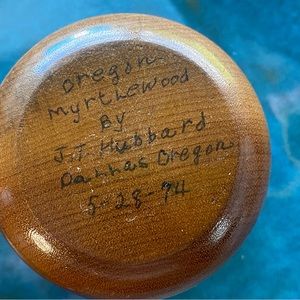 Oregon
Myrtlewood
By
J.T. Hubbard
Dallas Oregon
5-28-94